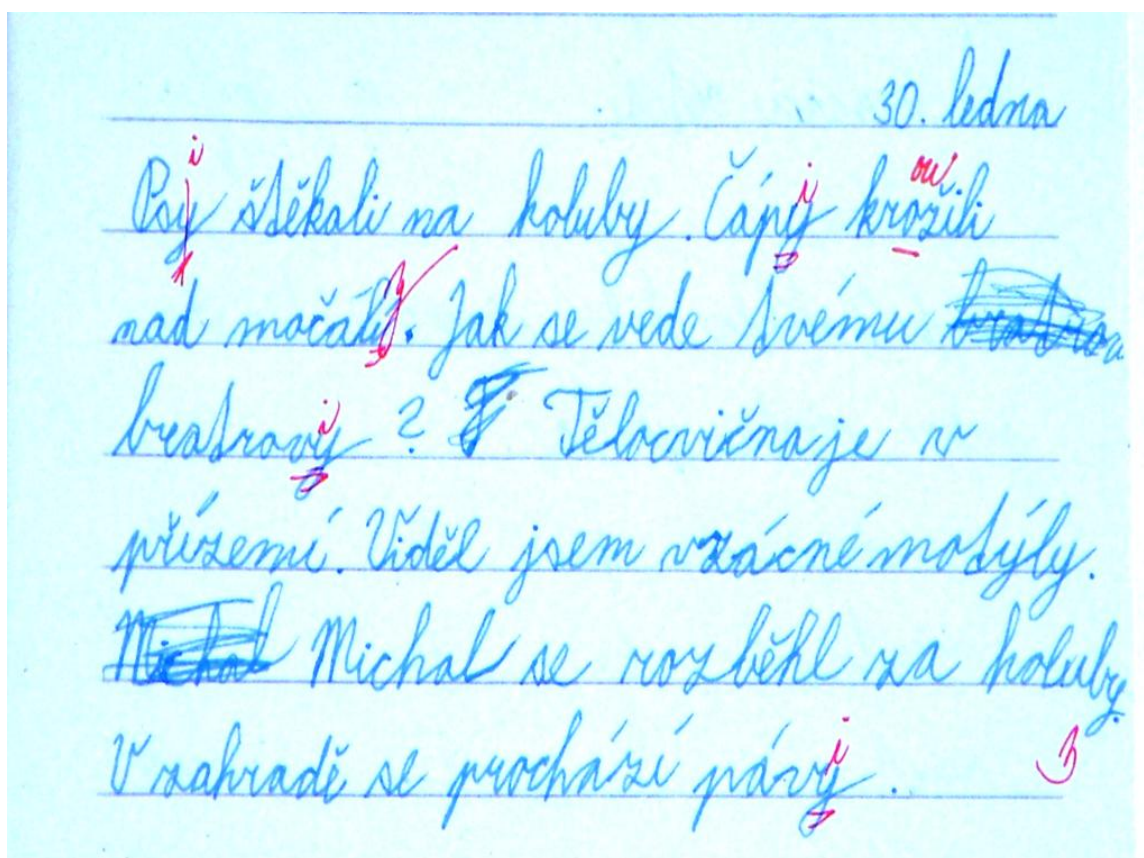 30. ledna
Psy štěkali na holuby. Čápy krožili
nad močáli. Jak se vede tvému
bratrovy? Tělocvična je v
přízemí. Viděl jsem vzácné motýly.
Michal Michal se rozběhl za holuby.
V zahradě se prochází pávy. 3